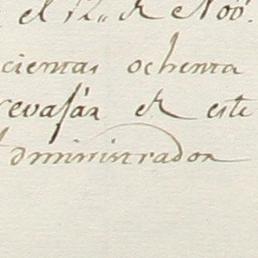 el 12,, de Nov.
cientas ochenta
revasán de este
Administrador